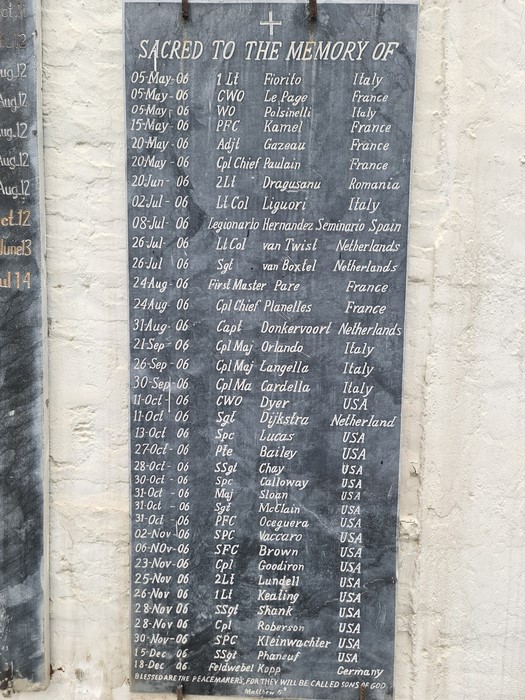 ct.11
ct.12
ug.12
Aug.12
ug.12
Aug.12
Aug.12
ct.12
June13
ul 14
SACRED TO THE MEMORY OF
05-May-06 1 Lt Fiorito Italy
05-May-06 CWO Le Page France
05-May-06 WO Polsinelli Italy
15-May-06 PFC Kamel France
20-May-06 Adjt Gazeau France
20May-06 Cpl Chief Paulain France
20-Jun-06 2Lt Dragusanu Romania
02-Jul-06 Lt Col Liguori Italy
08-Jul-06 Legionario Hernandez Seminario Spain
26-Jul-06 Lt Col van Twist Netherlands
26-Jul 06 Sgt van Boxtel Netherlands
24-Aug-06 First Master Pare France
24Aug-06 Cpl Chief Planelles France
31Aug-06 Capt Donkervoort Netherlands
21-Sep-06 Cpl Maj Orlando Italy
26-Sep-06 Cpl Maj Langella Italy
30-Sep-06 Cpl Ma Cardella Italy
11-Oct-06 CWO Dyer USA
11-Oct 06 Sgt Dijkstra Netherland
13-Oct 06 Spc Lucas USA
27-Oct 06 Pte Bailey USA
28-Oct-06 SSgt Chay USA
30-Oct-06 Spc Calloway USA
31-Oct-06 Maj Sloan USA
31-Oct-06 Sgt McClain USA
31-Oct-06 PFC Oceguera USA
02-Nov-06 SPC Vaccaro USA
06-NOv-06 SFC Brown USA
23-Nov-06 Cpl Goodiron USA
25-Nov 06 2Lt Lundell USA
26-Nov 06 1Lt Keating USA
28-Nov 06 SSgt Shank USA
28-Nov 06 Cpl Roberson USA
30-Nov-06 SPC Kleinwachter USA
15-Dec 06 SSgt Phaneuf USA
18-Dec 06 Feldwebel Kopp Germany
BLESSED ARE THE PEACEMAKERS, FOR THEY WILL BE CALLED SONS OF GOD
Matthew 5